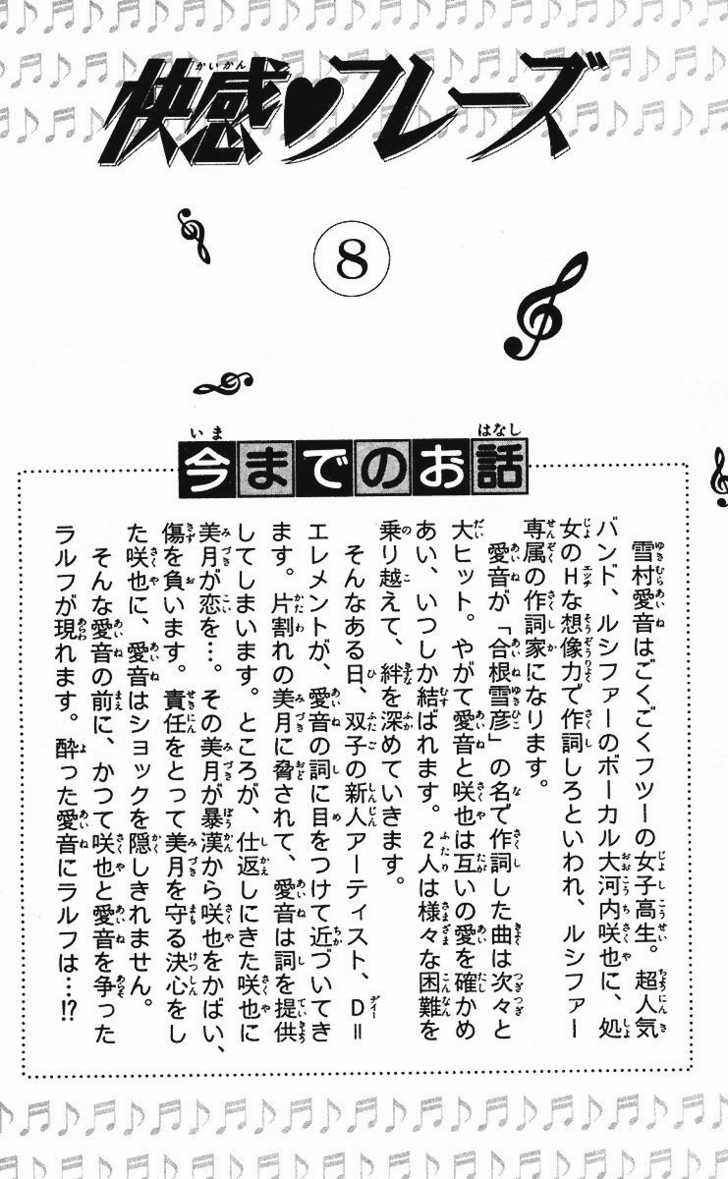 快感♥フレーズ
8
今までのお話
雪村愛音はごくごくフツーの女子高生。超人気
バンド、ルシファーのボーカル大河内咲也に、処
女のHな想像力で作詞しろといわれ、ルシファー
専属の作詞家になります。
愛音が「合根雪彦」の名で作詞した曲は次々と
大ヒット。やがて愛音と咲也は互いの愛を確かめ
あい、いつしか結ばれます。2人は様々な困難を
乗り越えて、絆を深めていきます。
そんなある日、双子の新人アーティスト、D=
エレメントが、愛音の詞に目をつけて近づいてき
ます。片割れの美月に脅されて、愛音は詞を提供
してしまいます。ところが、仕返しにきた咲也に
美月が恋を…。その美月が暴漢から咲也をかばい、
傷を負います。責任をとって美月を守る決心をし
た咲也に、愛音はショックを隠しきれません。
そんな愛音の前に、かつて咲也と愛音を争った
ラルフが現れます。酔った愛音にラルフは…!?